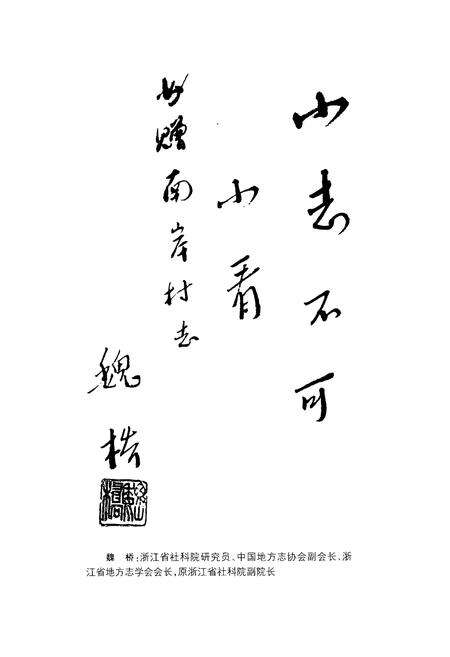 小志不可
小看
书赠南岸村志
魏桥
魏 桥:浙江省社科院研究员、中国地方志协会副会长、浙
江省地方志学会会长,原浙江省社科院副院长